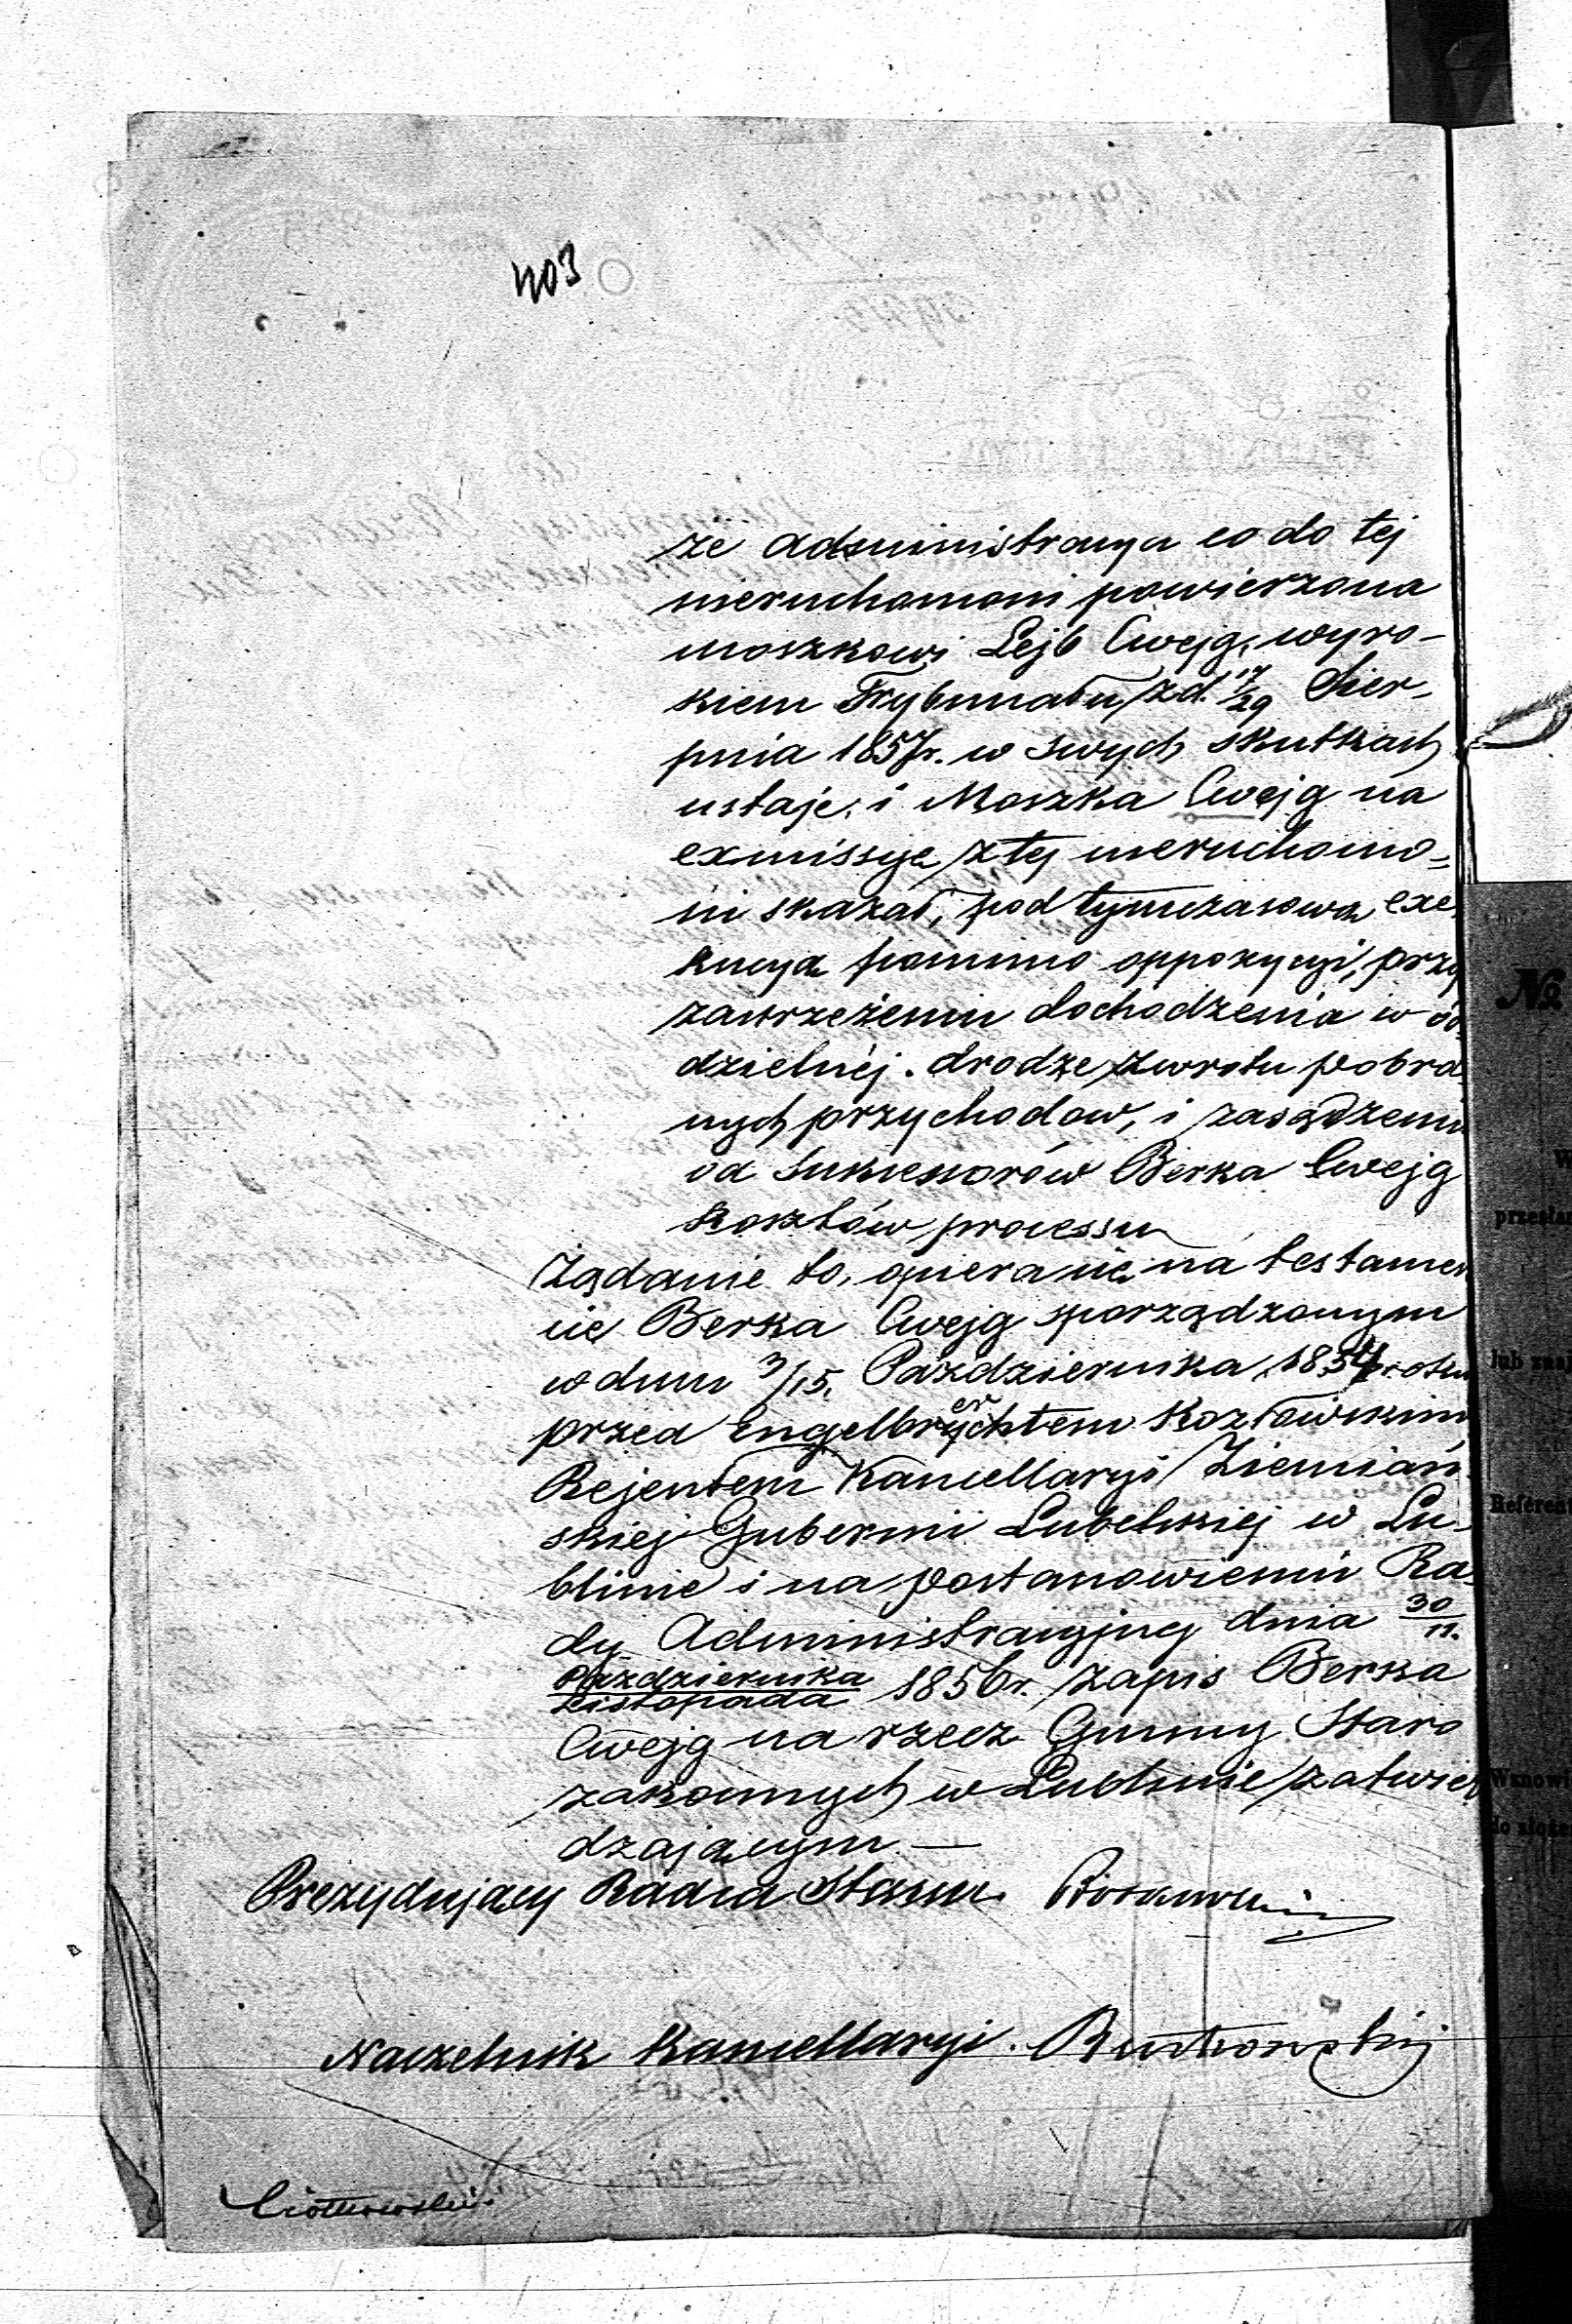 403
że administracya co do tej
nieruchomości powierzona
Moszkowi Lejb Cwejg, wyro-
kiem Trybunału z d. 17/29 Sier-
pnia 1857 r. w swych skutkach
ustaje, i Moszka Cwejg na
exmissyę z tej nieruchomo-
ści skazał, pod tymczasową exe-
kucyą pomimo oppozycyi, przy
zastrzeżeniu dochodzenia w od-
dzielnéj drodze zwrotu pobra
nych przychodow, i zasądzeniu
od Sukcessorów Berka Cwejg
kosztów processu
Żądanie to, opiera się na testamen
cie Berka Cwejg sporządzonym
w dniu 3/15 Października 1854 roku
przed Engelbrechtem Kozłowskim
Rejentem Kancellaryi Ziemiań
skiej Gubernii Lubelskiej w Lu-
blinie i na postanowieniu Ra-
dy Administracyjnej dnia 30/11.
Października/Listopada 1856 r. zapis Berka
Cwejg na rzecz Gminy Staro
zakonnych w Lublinie zatwier
dzającym. —
Prezydujący Radca Stanu
Naczelnik Kancellaryi. Rutkowski
№
W
przesłan
lub znaj
Referent
Wznowi
do złoże